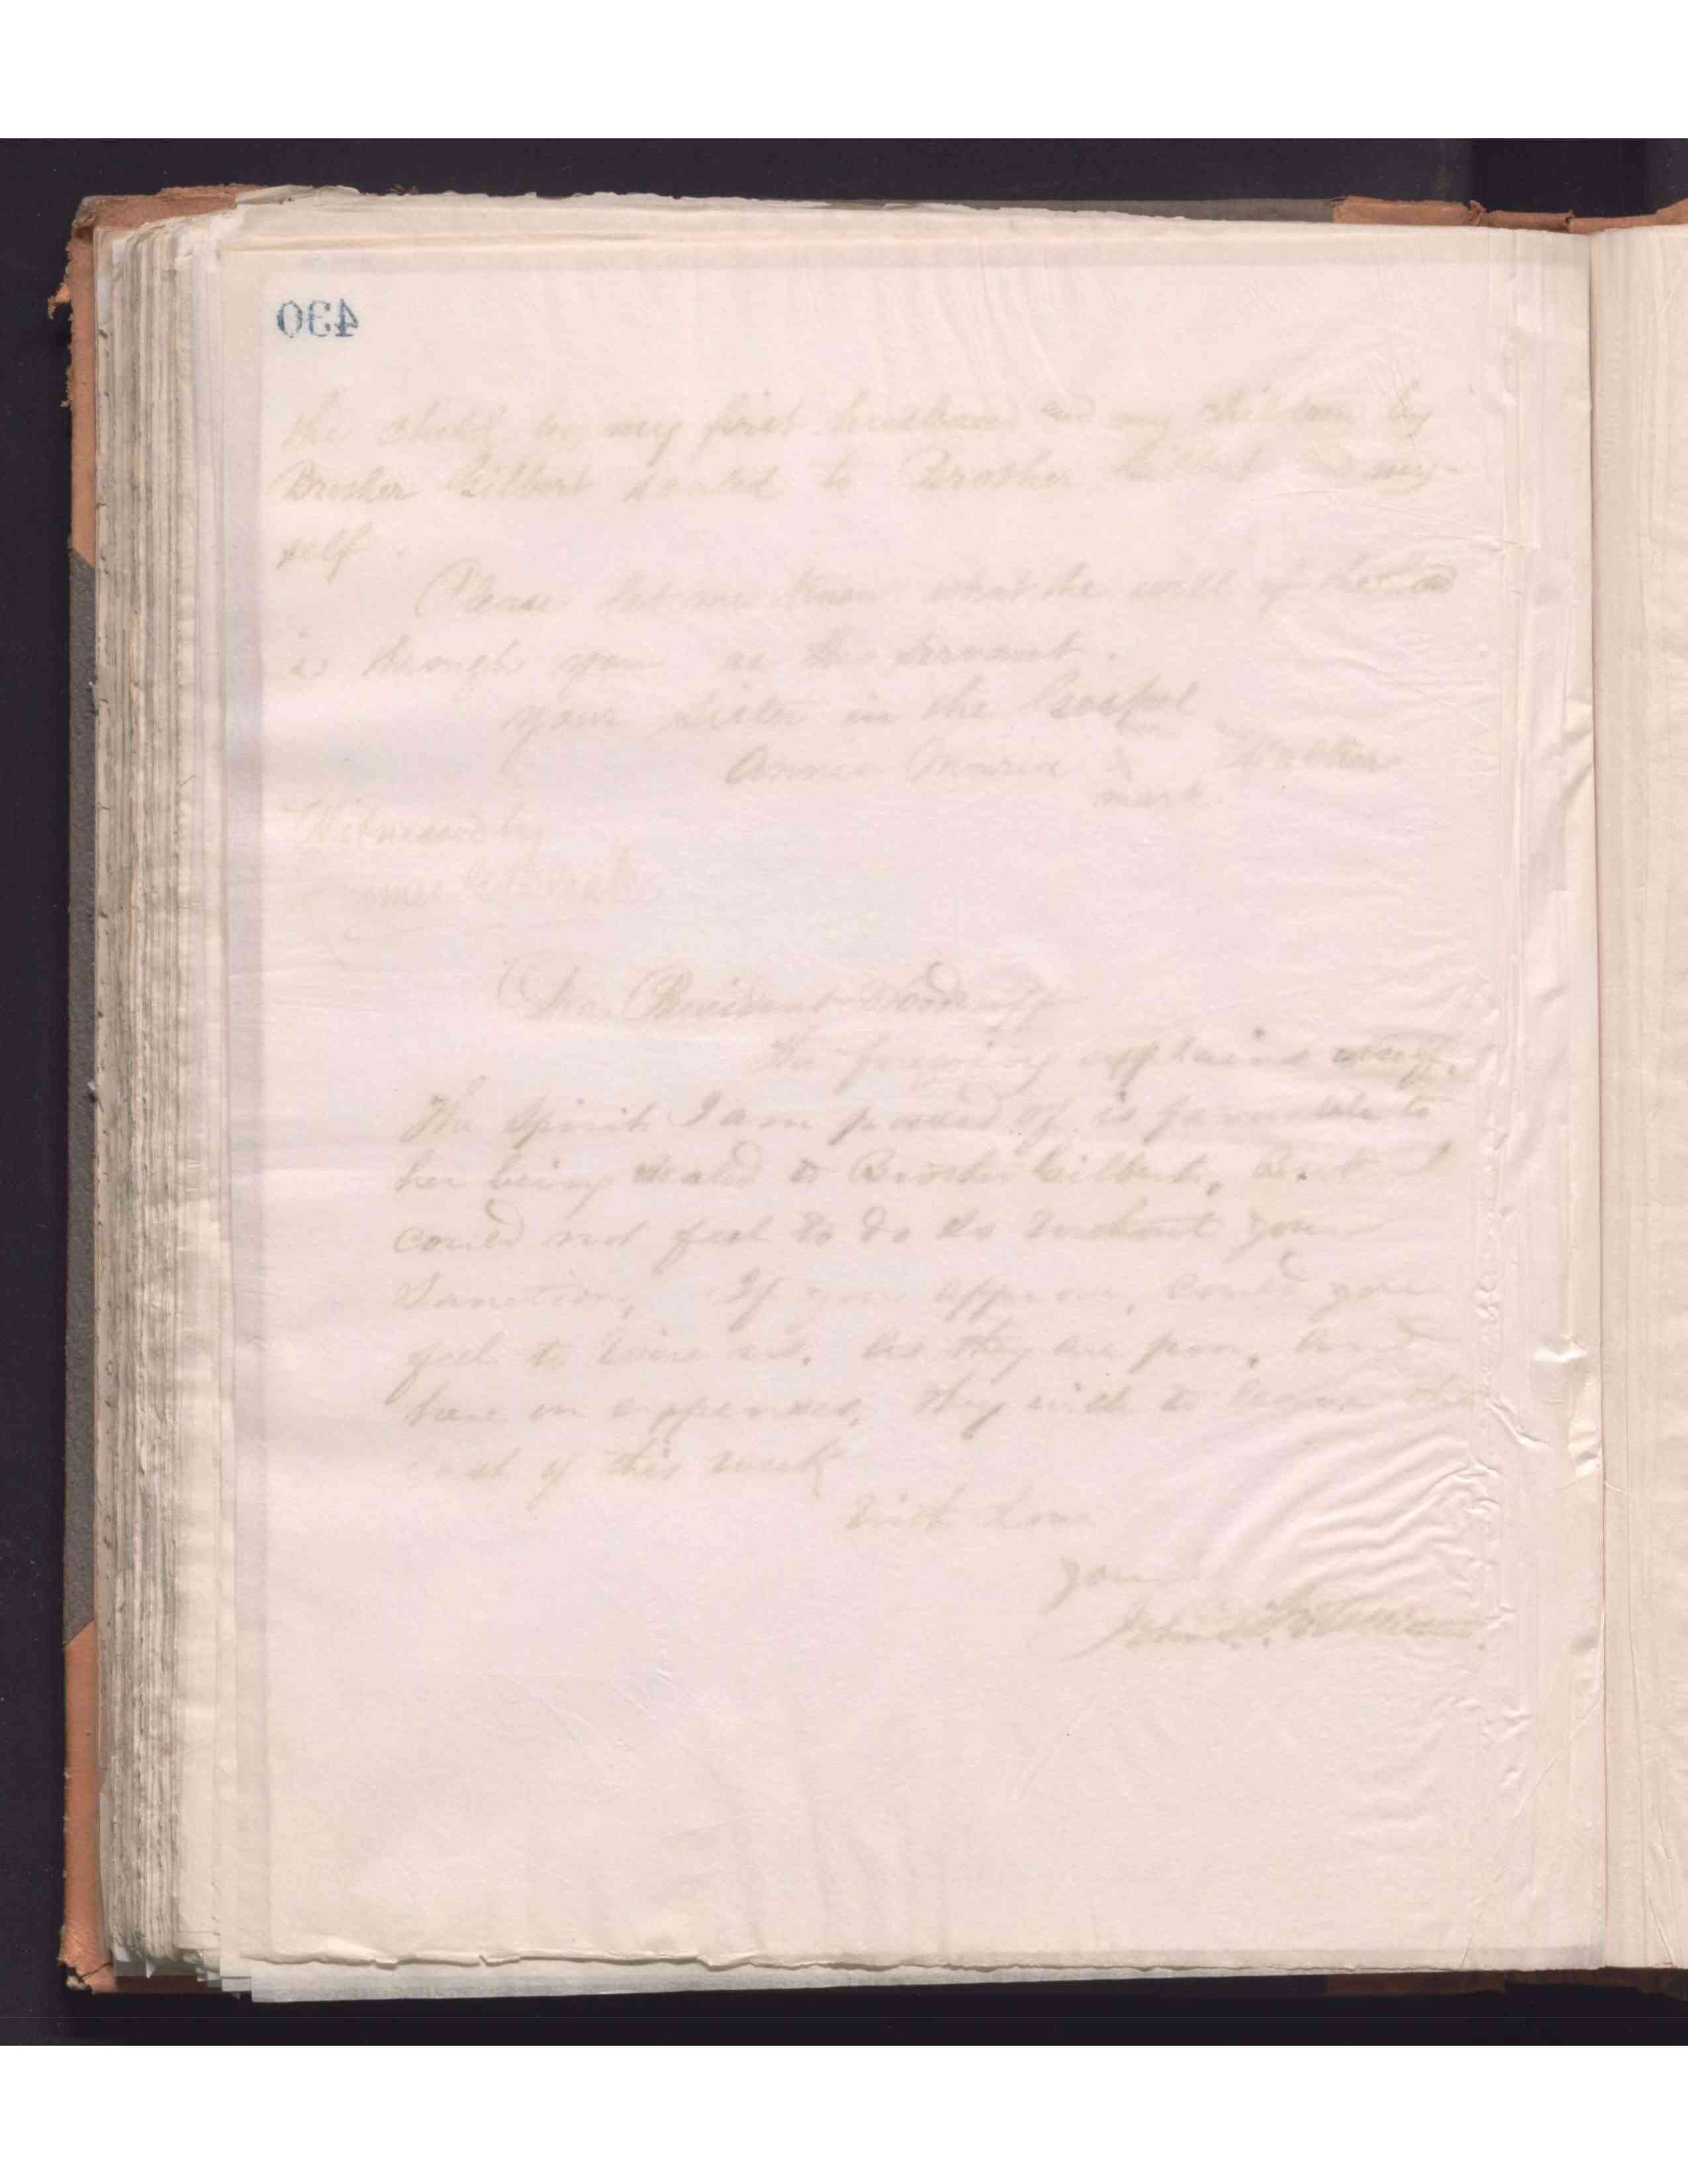 430
the child by my first husband and my children by
Brother Gilbert sealed to Brother Gilbert and my-
self.
Please let me know what the will of the Lord
is through you as his servant.
your sister in the Gospel
Annie Maria x
mark
Witnessed by
President Woodruff
The foregoing explains itself.
The spirit I am possessed of is favorable to
her being sealed to Brother Gilbert, But I
could not feel to do so without your
Sanction, If you approve, could you
feel to wire us. As they are poor, and
here on expenses, they wish to the
last of this week
With love
your
John D. T. McAllister.